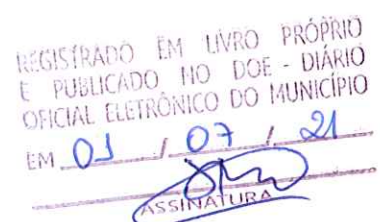 REGISTRADO EM LIVRO PRÓPRIO
E PUBLICADO NO DOE - DIÁRIO
OFICIAL ELETRÔNICO DO MUNICÍPIO
EM 01 / 07 / 21
ASSINATURA